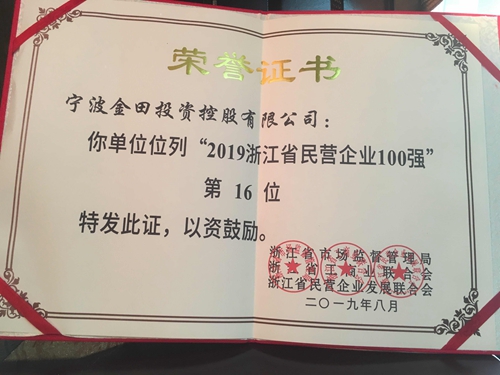 荣誉证书
宁波金田投资控股有限公司：
你单位位列“2019浙江省民营企业100强”
第 16 位
特发此证，以资鼓励。
浙江省市场监督管理局
浙江省工商业联合会
浙江省民营企业发展联合会
二〇一九年八月